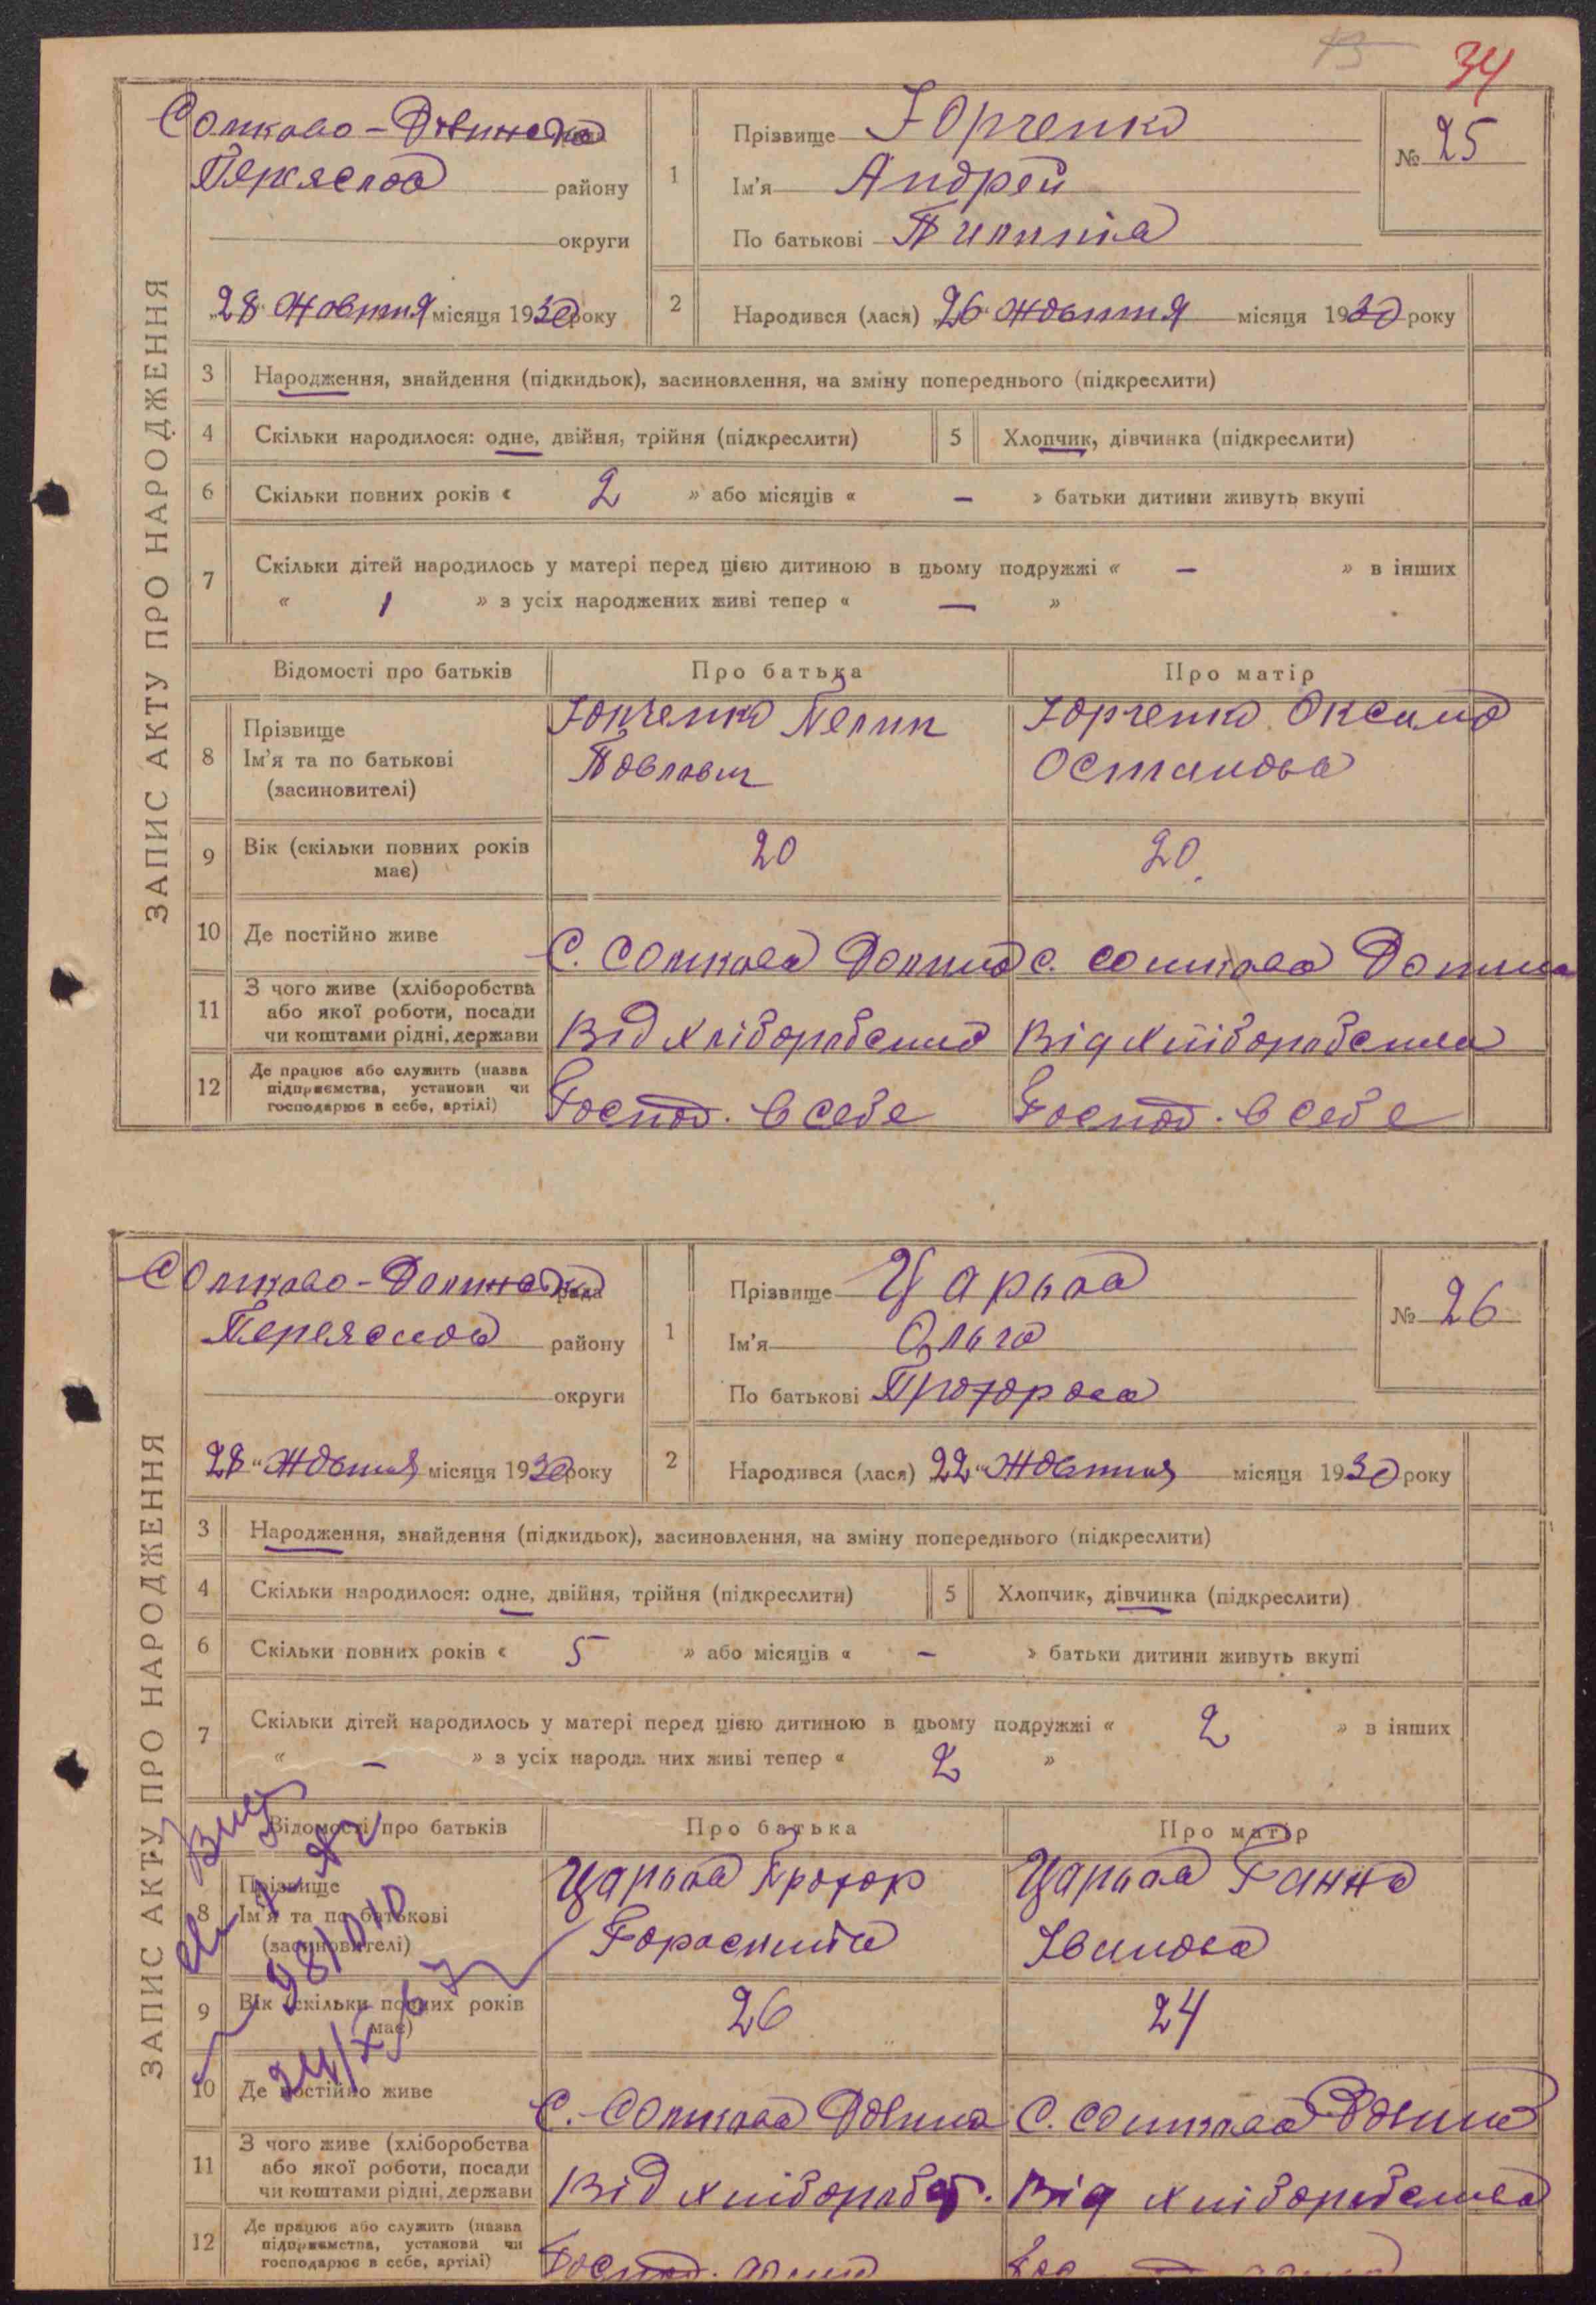 34
ЗАПИС АКТУ ПРО НАРОДЖЕННЯ
Сомково-Долинска рада
району
округи
„28“ Жовтня місяця 1930 року
1 Прізвище Юрченко
Ім'я Андрей
По батькові
№ 25
2 Народився (лася) „26“ Жовтня місяця 1930 року
3 Народження, знайдення (підкидьок), засиновлення, на зміну попереднього (підкреслити)
4 Скільки народилося: одне, двійня, трійня (підкреслити) 5 Хлопчик, дівчинка (підкреслити)
6 Скільки повних років « 2 » або місяців « – » батьки дитини живуть вкупі
7 Скільки дітей народилось у матері перед цією дитиною в цьому подружжі « – » в інших
« 1 » з усіх народжених живі тепер « — »
Відомості про батьків Про батька Про матір
8 Прізвище
Ім'я та по батькові
(засиновителі)
Юрченко Пелип
Павлович
Юрченко Оксана
Остапова
9 Вік (скільки повних років
має)
20 20
10 Де постійно живе С. Сомкова Долина с. Сомкова Долина
11 З чого живе (хліборобства
або якої роботи, посади
чи коштами рідні, держави
Від хліборобства Від хліборобства
12 Де працює або служить (назва
підприємства, установи чи
господарює в себе, артілі)
Господ. в себе Господ. в себе
ЗАПИС АКТУ ПРО НАРОДЖЕННЯ
Сомково-Долинска рада
району
округи
28“ Жовтня місяця 1930 року
1 Прізвище Царьва
Ім'я Ольга
По батькові Прохорова
№ 26
2 Народився (лася) 22“ Жовтня місяця 1930 року
3 Народження, знайдення (підкидьок), засиновлення, на зміну попереднього (підкреслити)
4 Скільки народилося: одне, двійня, трійня (підкреслити) 5 Хлопчик, дівчинка (підкреслити)
6 Скільки повних років « 5 » або місяців « – » батьки дитини живуть вкупі
7 Скільки дітей народилось у матері перед цією дитиною в цьому подружжі « 2 » в інших
« – » з усіх народжених живі тепер « 2 »
Відомості про батьків Про батька Про матір
8 Прізвище
Ім'я та по батькові
(засиновителі)
Царьва Прохор
Царьва Ганна
Іванова
9 Вік (скільки повних років
має)
26 24
10 Де постійно живе С. Сомкова Долина С. Сомкова Долина
11 З чого живе (хліборобства
або якої роботи, посади
чи коштами рідні, держави
Від хліборобст. Від хліборобства
12 Де працює або служить (назва
підприємства, установи чи
господарює в себе, артілі)
Господ.